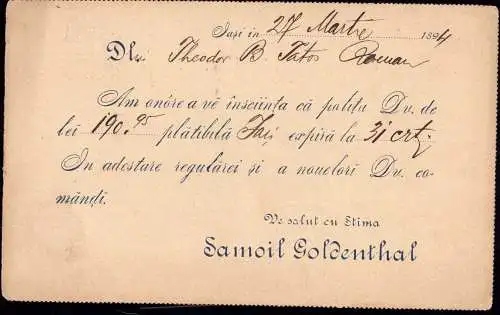 Iași in 27 Martie 1894
Dlui Theodor B. Tatos Roman
Am onóre a vĕ însciința că polița Dv. de
lei 190.95 plătibilă Iași expiră la 31 crt.
In adestare regulărei și a nouelori Dv. co-
mănḑi.
Ve salut cu Stima
Samoil Goldenthal